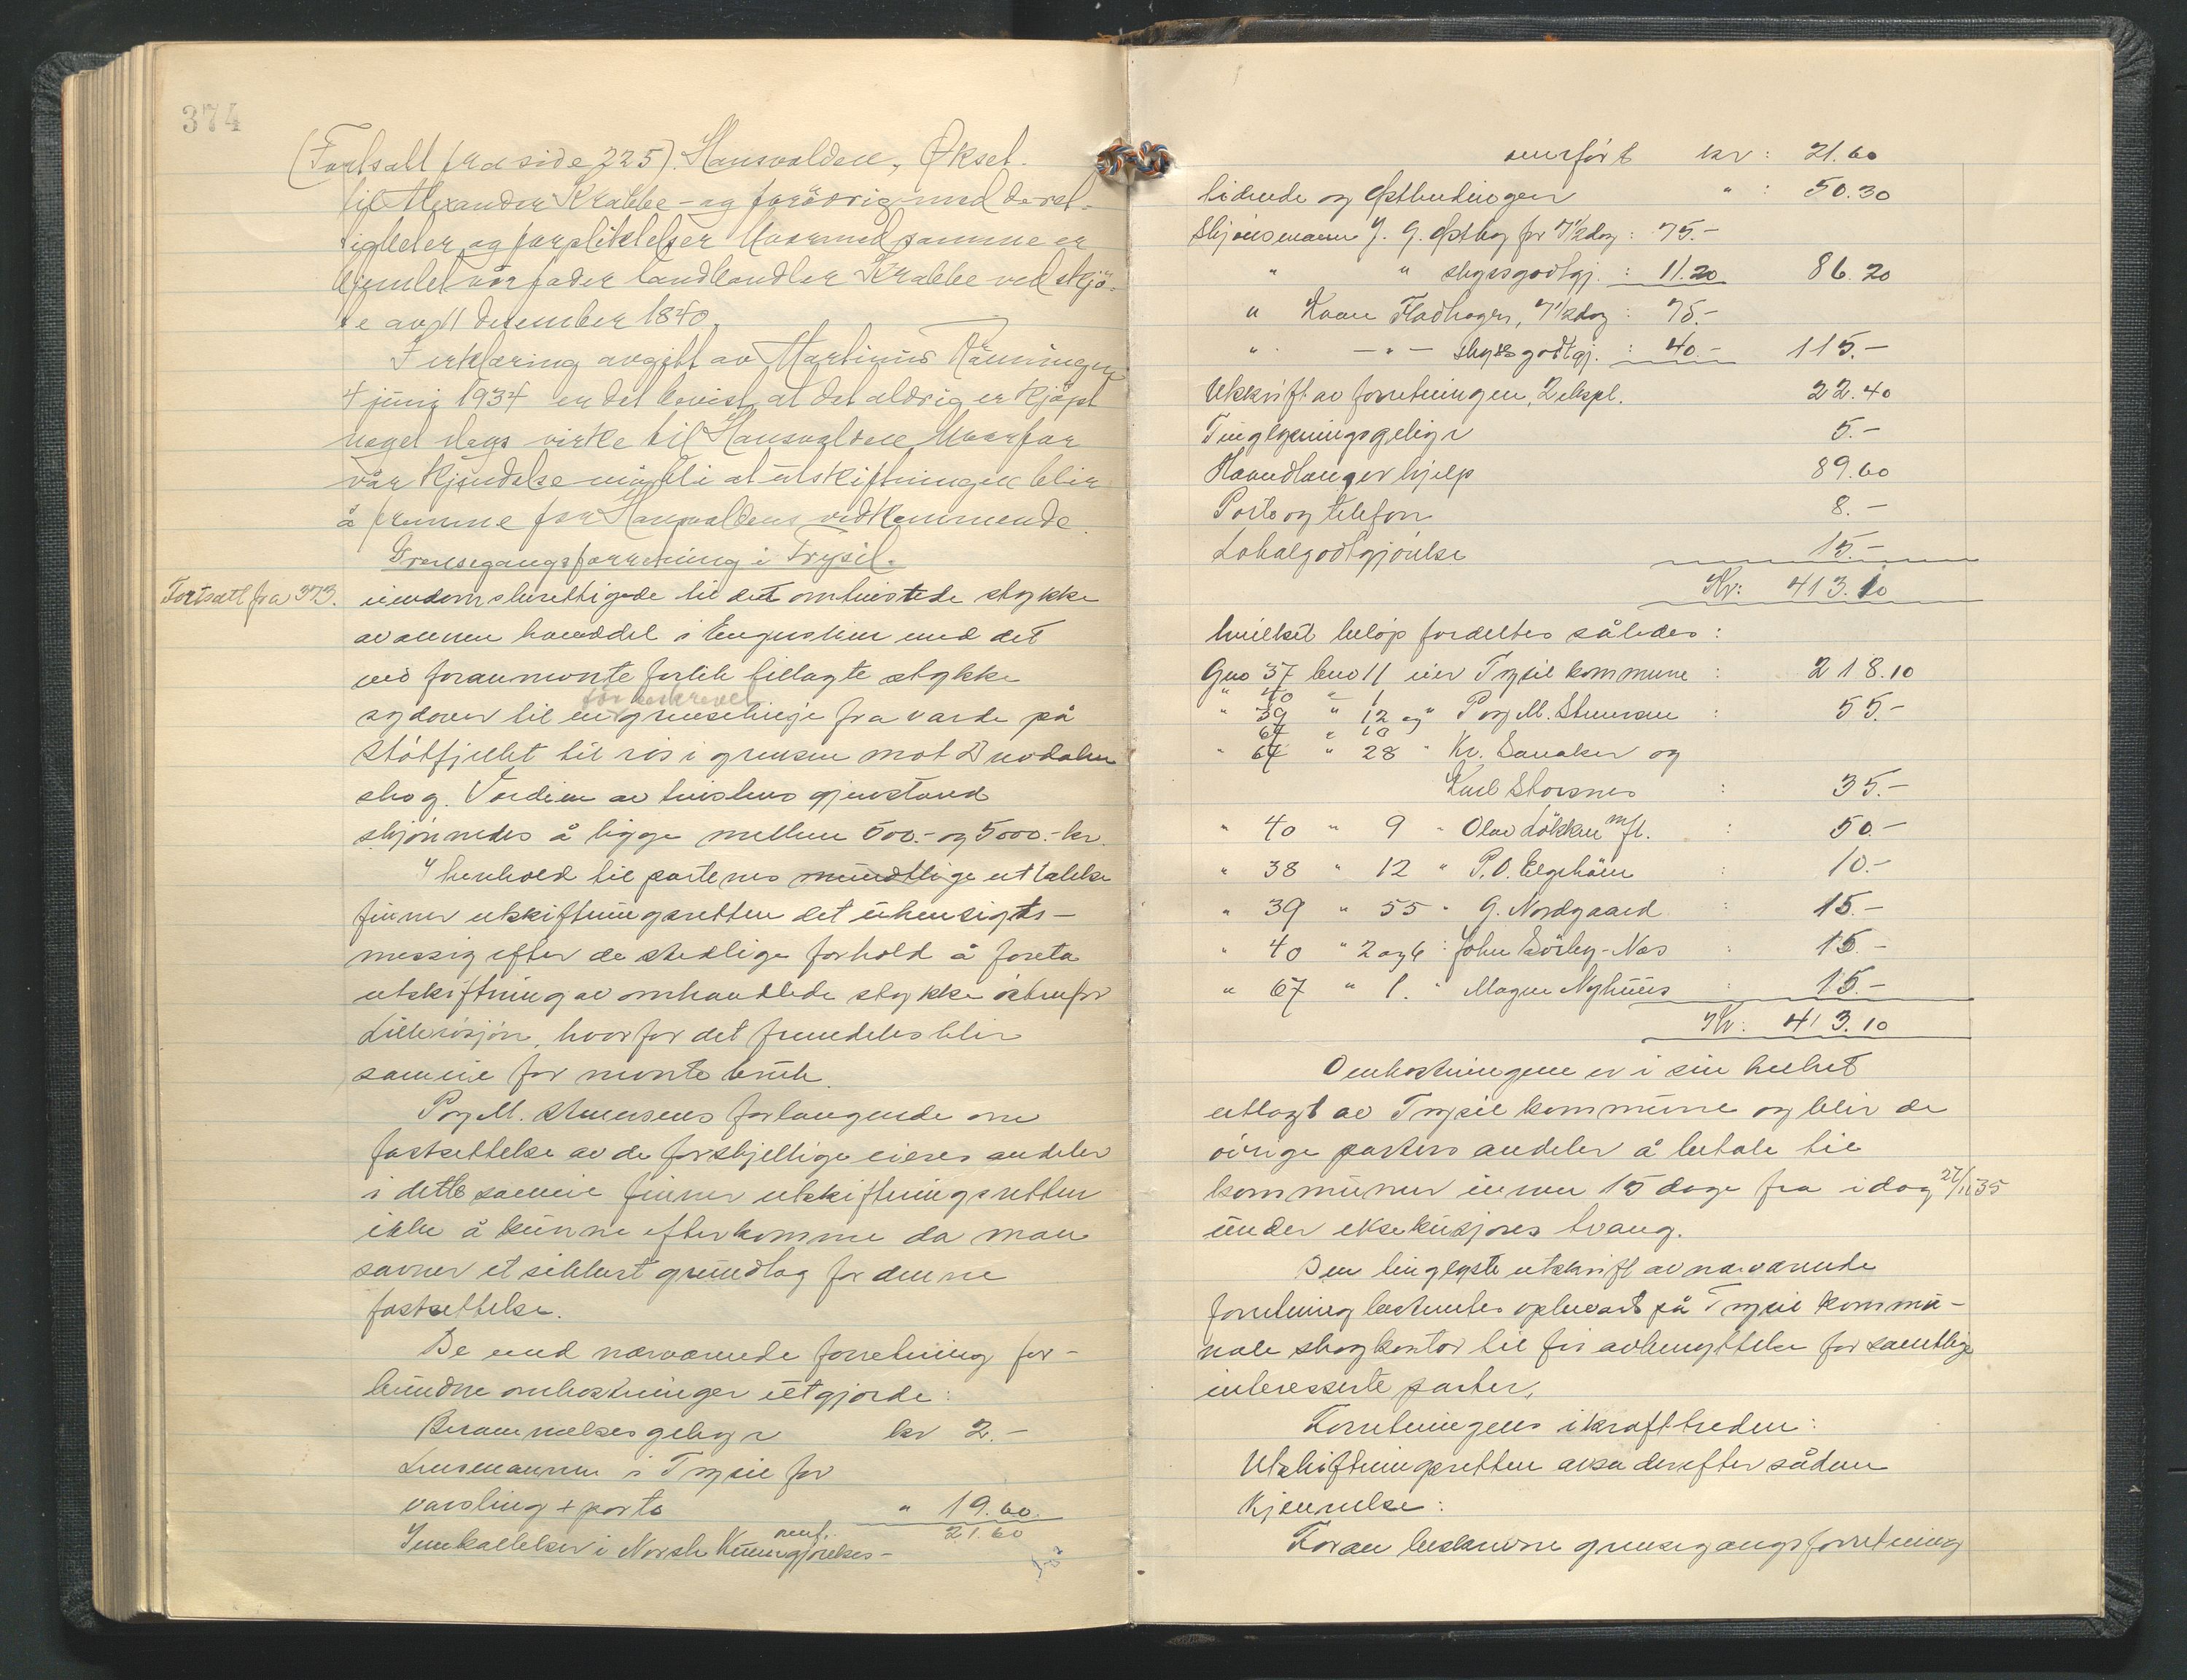 374
(Fortsatt fra side 225). Hansvolden, Økset.
til Alexander Krabbe - og forøvrig med de ret-
tigheter og forpliktelser hvormed samme er
hjemlet vor fader Landhandler Krabbe ved skjø-
te av 11 desember 1840.
I erklæring avgitt av Martinus Rønningen
4 juni 1934 er det bevist at det aldrig er kjøpt
noget slags virke til Hansvolden hvorfor
vår kjendelse må bli at utskiftningen blir
å fremme for Hansvoldens vedkommende.
Grensegangsforretning i Trysil.
Fortsatt fra 373.
eiendomsberettigede til det omtvistede stykke
av annen havnedel i Enguslien med det
ved forannevnte forlik tillagte stykke
før beskrevet
sydover til en grenselinje fra varde på
Støtfjellet til røs i grensen mot Drevdalen
skog. Verdien av tvistens gjenstand
skjønnedes å ligge mellem 500.- og 5000.- kr.
I henhold til partenes mundtlige uttalelse
finner utskiftningsretten det uhensigts-
messig efter de stedlige forhold å foreta
utskiftning av omhandlede stykke østenfor
Lillerøsjøn, hvorfor det fremdeles blir
sameie for nevnte bruk.
Per M. Stenersens forlangende om
fastsettelse av de forskjellige eieres andeler
i dette sameie finner utskiftningsretten
ikke å kunne efterkomme da man
savner et sikkert grundlag for denne
fastsettelse.
De med nærværende forretning for-
bundne omkostninger utgjorde:
Berammelsesgebyr kr 2.-
Lensmannen i Trysil for
varsling + porto " 19.60.
omf. 21.60
Innkallelser i Norsk Kunngjørelses-
omført kr: 21.60
tidende og Østlendingen " : 50.30
Skjønsmann J. G. Østby for 7½ dag: 75.-
" " skyssgodtgj. : 11.20 86.20
" Kaare Fladhagen, 7½ dag : 75.-
" -"- skyssgodtgj. : 40.- 115.-
Utskrift av forretningen, 2 ekspl. 22.40
Tinglysningsgebyr 5.-
Haandlangerhjelp 89.60
Porto og telefon 8.-
Lokalgodtgjørelse 15.-
Kr: 413.10
hvilket beløp fordeltes således:
Gno 37 bno 11 eier Trysil kommune : 218.10
" 40 " 1
" 39 " 12 og " Per M. Stenersen : 55.-
67 " 10
" 67 " 28 " Kr. Sanaker og
Karl Storsnes : 35.-
" 40 " 9 " Olav Løkken m fl. : 50.-
" 38 " 12 " P. O. Elgshøen : 10.-
" 39 " 55 " G. Nordgaard : 15.-
" 40 " 2 og 6 : John Sørby-Nes : 15.-
" 67 " 1. " Magne Nyhuus : 15.-
Kr: 413.10
Omkostningene er i sin helhet
utlagt av Trysil kommune og blir de
øvrige parters andeler å betale til
kommunen innen 15 dage fra idag 27/11 35
under eksekusjons tvang.
Den tinglyste utskrift av nærværende
forretning bestemtes opbevart på Trysil kommu-
nale skogkontor til fri avbenyttelse for samtlige
interesserte parter.
Forretningens ikrafttreden:
Utskiftningsretten avsa derefter sådan
Kjennelse:
Foran beskrevne grensegangsforretning